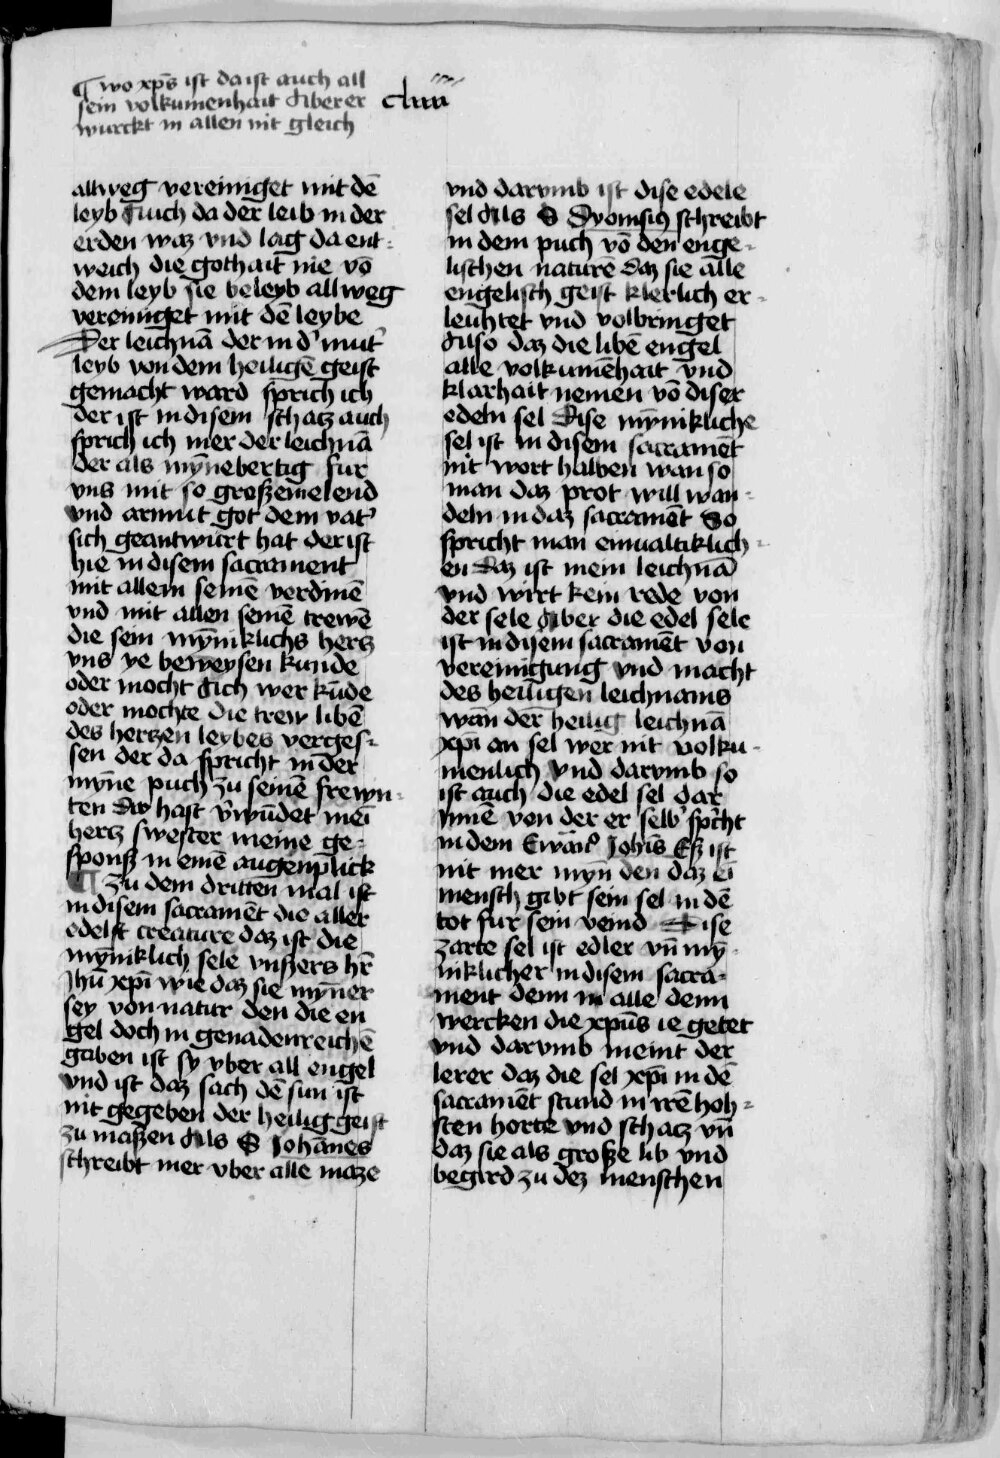 ¶ wo xp̄s ist da ist auch all
sein volkumenhait Aber er
wurckt in allen nit gleich
allweg vereiniget mit dē
leyb Auch da der leib in der
erden waz vnd lag da ent-
weich die gothait nie vō
dem leyb sie beleyb allweg
vereiniget mit dē leybe
Der leichnā der in d' mut'
leyb von dem heiligē geist
gemacht ward sprich ich
der ist in disem schatz auch
sprich ich mer der leichnā
der als mȳnebertig fur
vns mit so großem elend
vnd armut got dem vat'
sich geantwurt hat der ist
hie in disem sacrament
mit allem seinē verdinē
vnd mit allen seinē trewē
die sein mȳniklichs hertz
vns ye beweysen kunde
oder mocht Ach wer kūde
oder mochte die trew libē
des hertzen leybes verges-
sen der da spricht in der
mȳne puch zu seinē frewn-
ten Du hast v'wūdet mei
hertz swester meine ge-
sponß in einē augenplick
¶ Zu dem dritten mal ist
in disem sacramēt die aller
edelst creature daz ist die
mȳniklich sele vnßers hr̄
Jhū xp̄i wie daz sie mȳner
sey von natur den die en
gel doch in genadenreichē
gaben ist sy vber all engel
vnd ist daz sach dē sun ist
nit gegeben der heilig geist
zu maßen Als S Johānes
schreibt mer vber alle maze
vnd darvmb ist dise edele
sel Als S Dyonisiꝫ schreibt
in dem puch vō den enge-
lischen naturē daz sie alle
engelisch geist klerlich er-
leuhtet vnd volbringet
Also daz die libē engel
alle volkumēhait vnd
klarhait nemen vō diser
edeln sel Dise mȳnikliche
sel ist in disem sacramēt
nit wort halben wan so
man daz prot will wan-
deln in daz sacramēt So
spricht man einualtiklich-
en Daz ist mein leichnā
vnd wirt kein rede von
der sele Aber die edel sele
ist in dysem sacramēt von
vereinigung vnd macht
des heiligen leichnams
wān der heilig leichnā
xp̄i an sel wer nit volku-
menlich vnd darvmb so
ist auch die edel sel dar
ynnē von der er selb' sp'cht
in dem Ewāḡ Johīs Eß ist
nit mer mȳn den daz ei
mensch gibt sein sel in dē
tot fur sein veind Dise
zarte sel ist edler vn̄ mȳ-
niklicher in disem sacra-
ment denn in alle denn
wercken die xp̄us ie getet
vnd darvmb meint der
lerer daz die sel xp̄i in dē
sacramēt stund in irē hoh-
sten horte vnd schatz vn̄
daz sie als große lib vnd
begird zu dez menschen